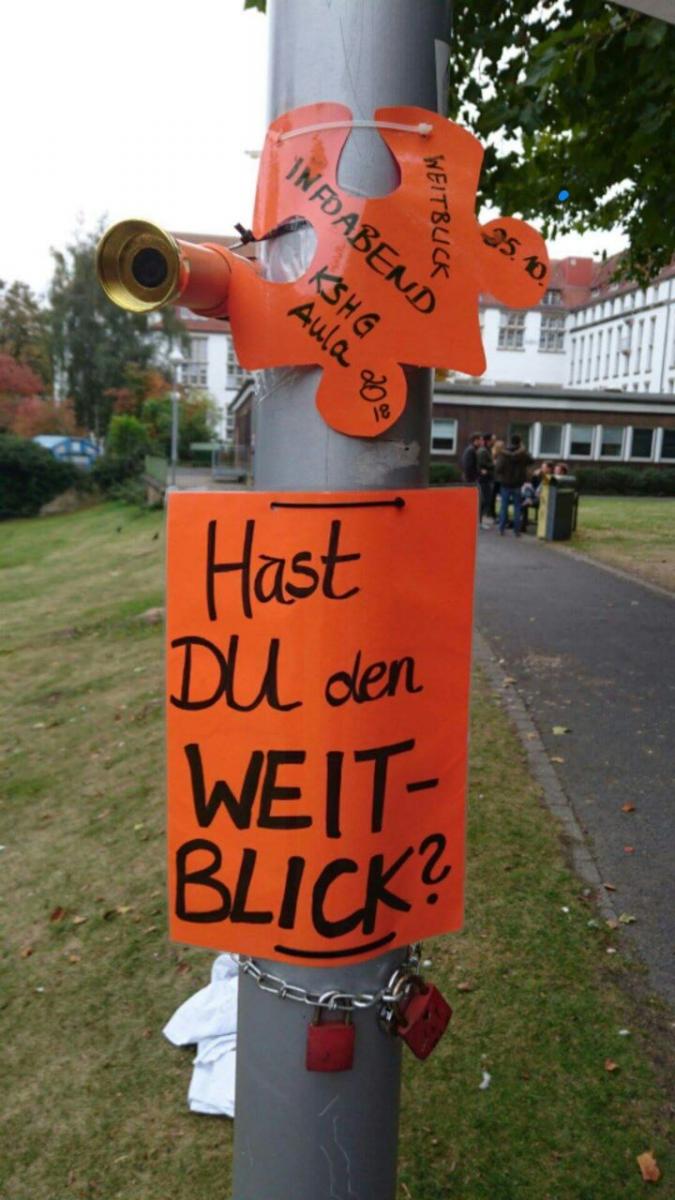 WEITBLICK
INFOABEND
25.10.
KSHG
Aula
20 18
Hast
DU den
WEIT-
BLICK?